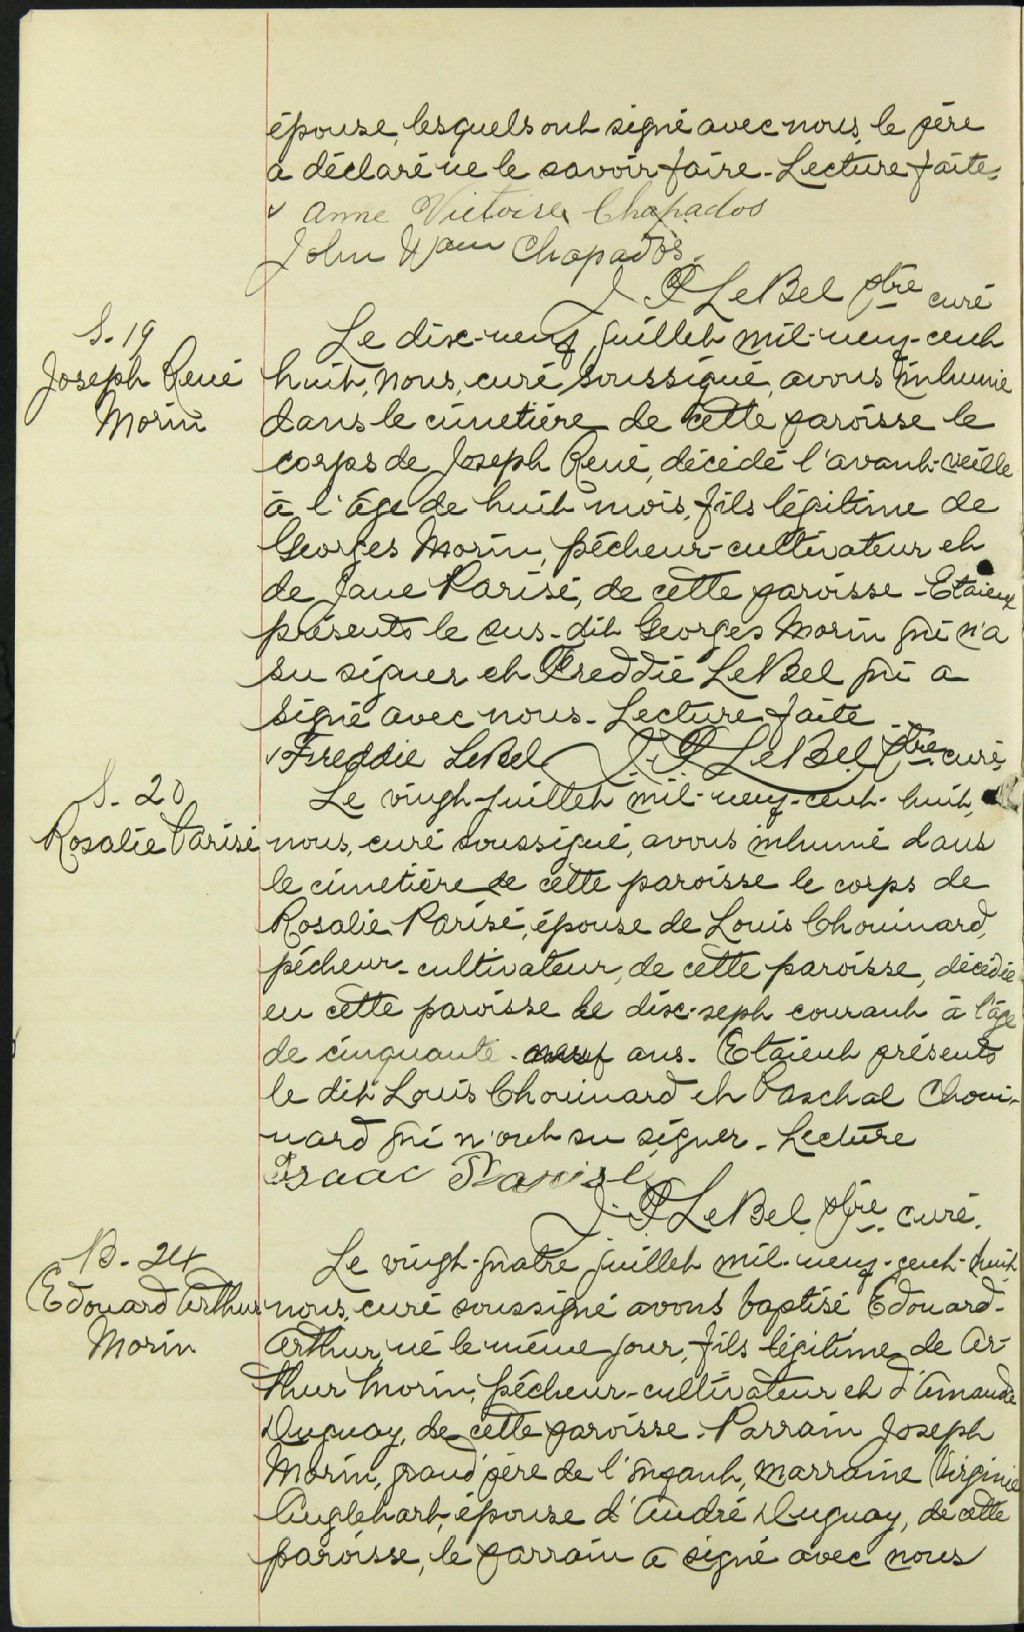 épouse, lesquels ont signé avec nous, le père
a déclaré ne le savoir faire. Lecture faite.
Anne Victoire Chapados
John Wam Chapados.
J. P. LeBel ptre curé
S. 19
Joseph René
Morin
Le dix-neuf juillet mil-neuf-cent
huit, nous, curé soussigné, avons inhumé
dans le cimetière de cette paroisse le
corps de Joseph René, décédé l'avant-veille
à l'âge de huit mois, fils légitime de
Georges Morin, pêcheur-cultivateur et
de Jane Parisé, de cette paroisse - Etaient
présents le sus-dit Georges Morin qui n'a
su signer et Freddie LeBel qui a
signé avec nous. Lecture faite
Freddie LeBel J. P. LeBel ptre curé
S. 20
Rosalie Parisé
Le vingt-juillet mil-neuf-cent-huit,
nous, curé soussigné, avons inhumé dans
le cimetière de cette paroisse le corps de
Rosalie Parisé, épouse de Louis Chouinard,
pêcheur-cultivateur, de cette paroisse, décédée
en cette paroisse le dix-sept courant à l'âge
de cinquante-neuf ans. Etaient présents
le dit Louis Chouinard et Paschal Choui-
nard qui n'ont su signer. Lecture
Isaac Parisé
J. P. LeBel ptre curé.
B. 24
Edouard Arthur
Morin
Le vingt-quatre juillet mil-neuf-cent-huit
nous, curé soussigné avons baptisé Edouard-
Arthur, né le même jour, fils légitime de Ar-
thur Morin, pêcheur-cultivateur et d'Amanda
Duguay, de cette paroisse. Parrain Joseph
Morin, grand'père de l'enfant, marraine Virginie
Anglehart, épouse d'André Duguay, de cette
paroisse, le parrain a signé avec nous